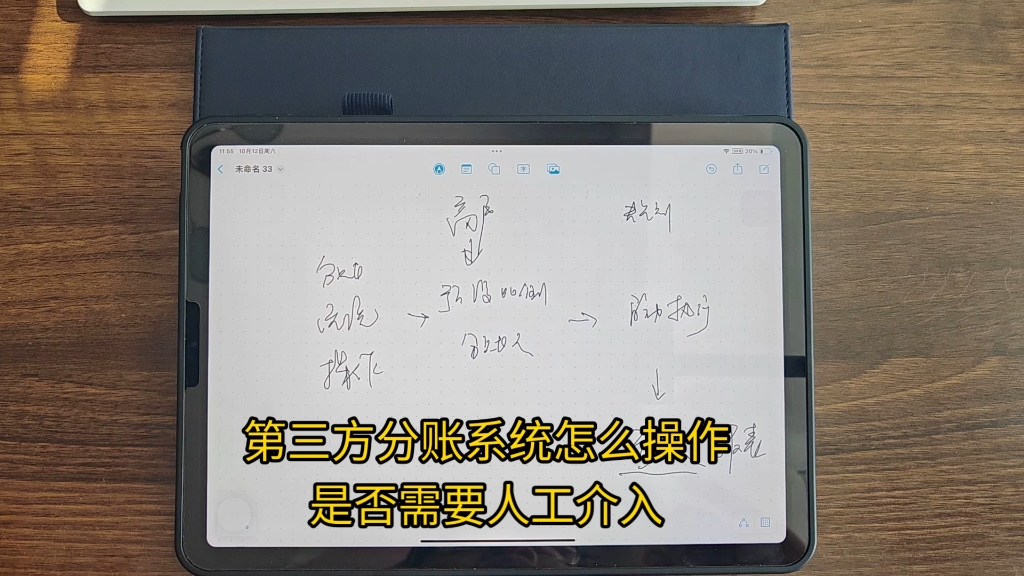 11:55 10月12日周六
20%
未命名 33
分账
系统
操作
预设比例
分账人
自动执行
报表
第三方分账系统怎么操作
是否需要人工介入